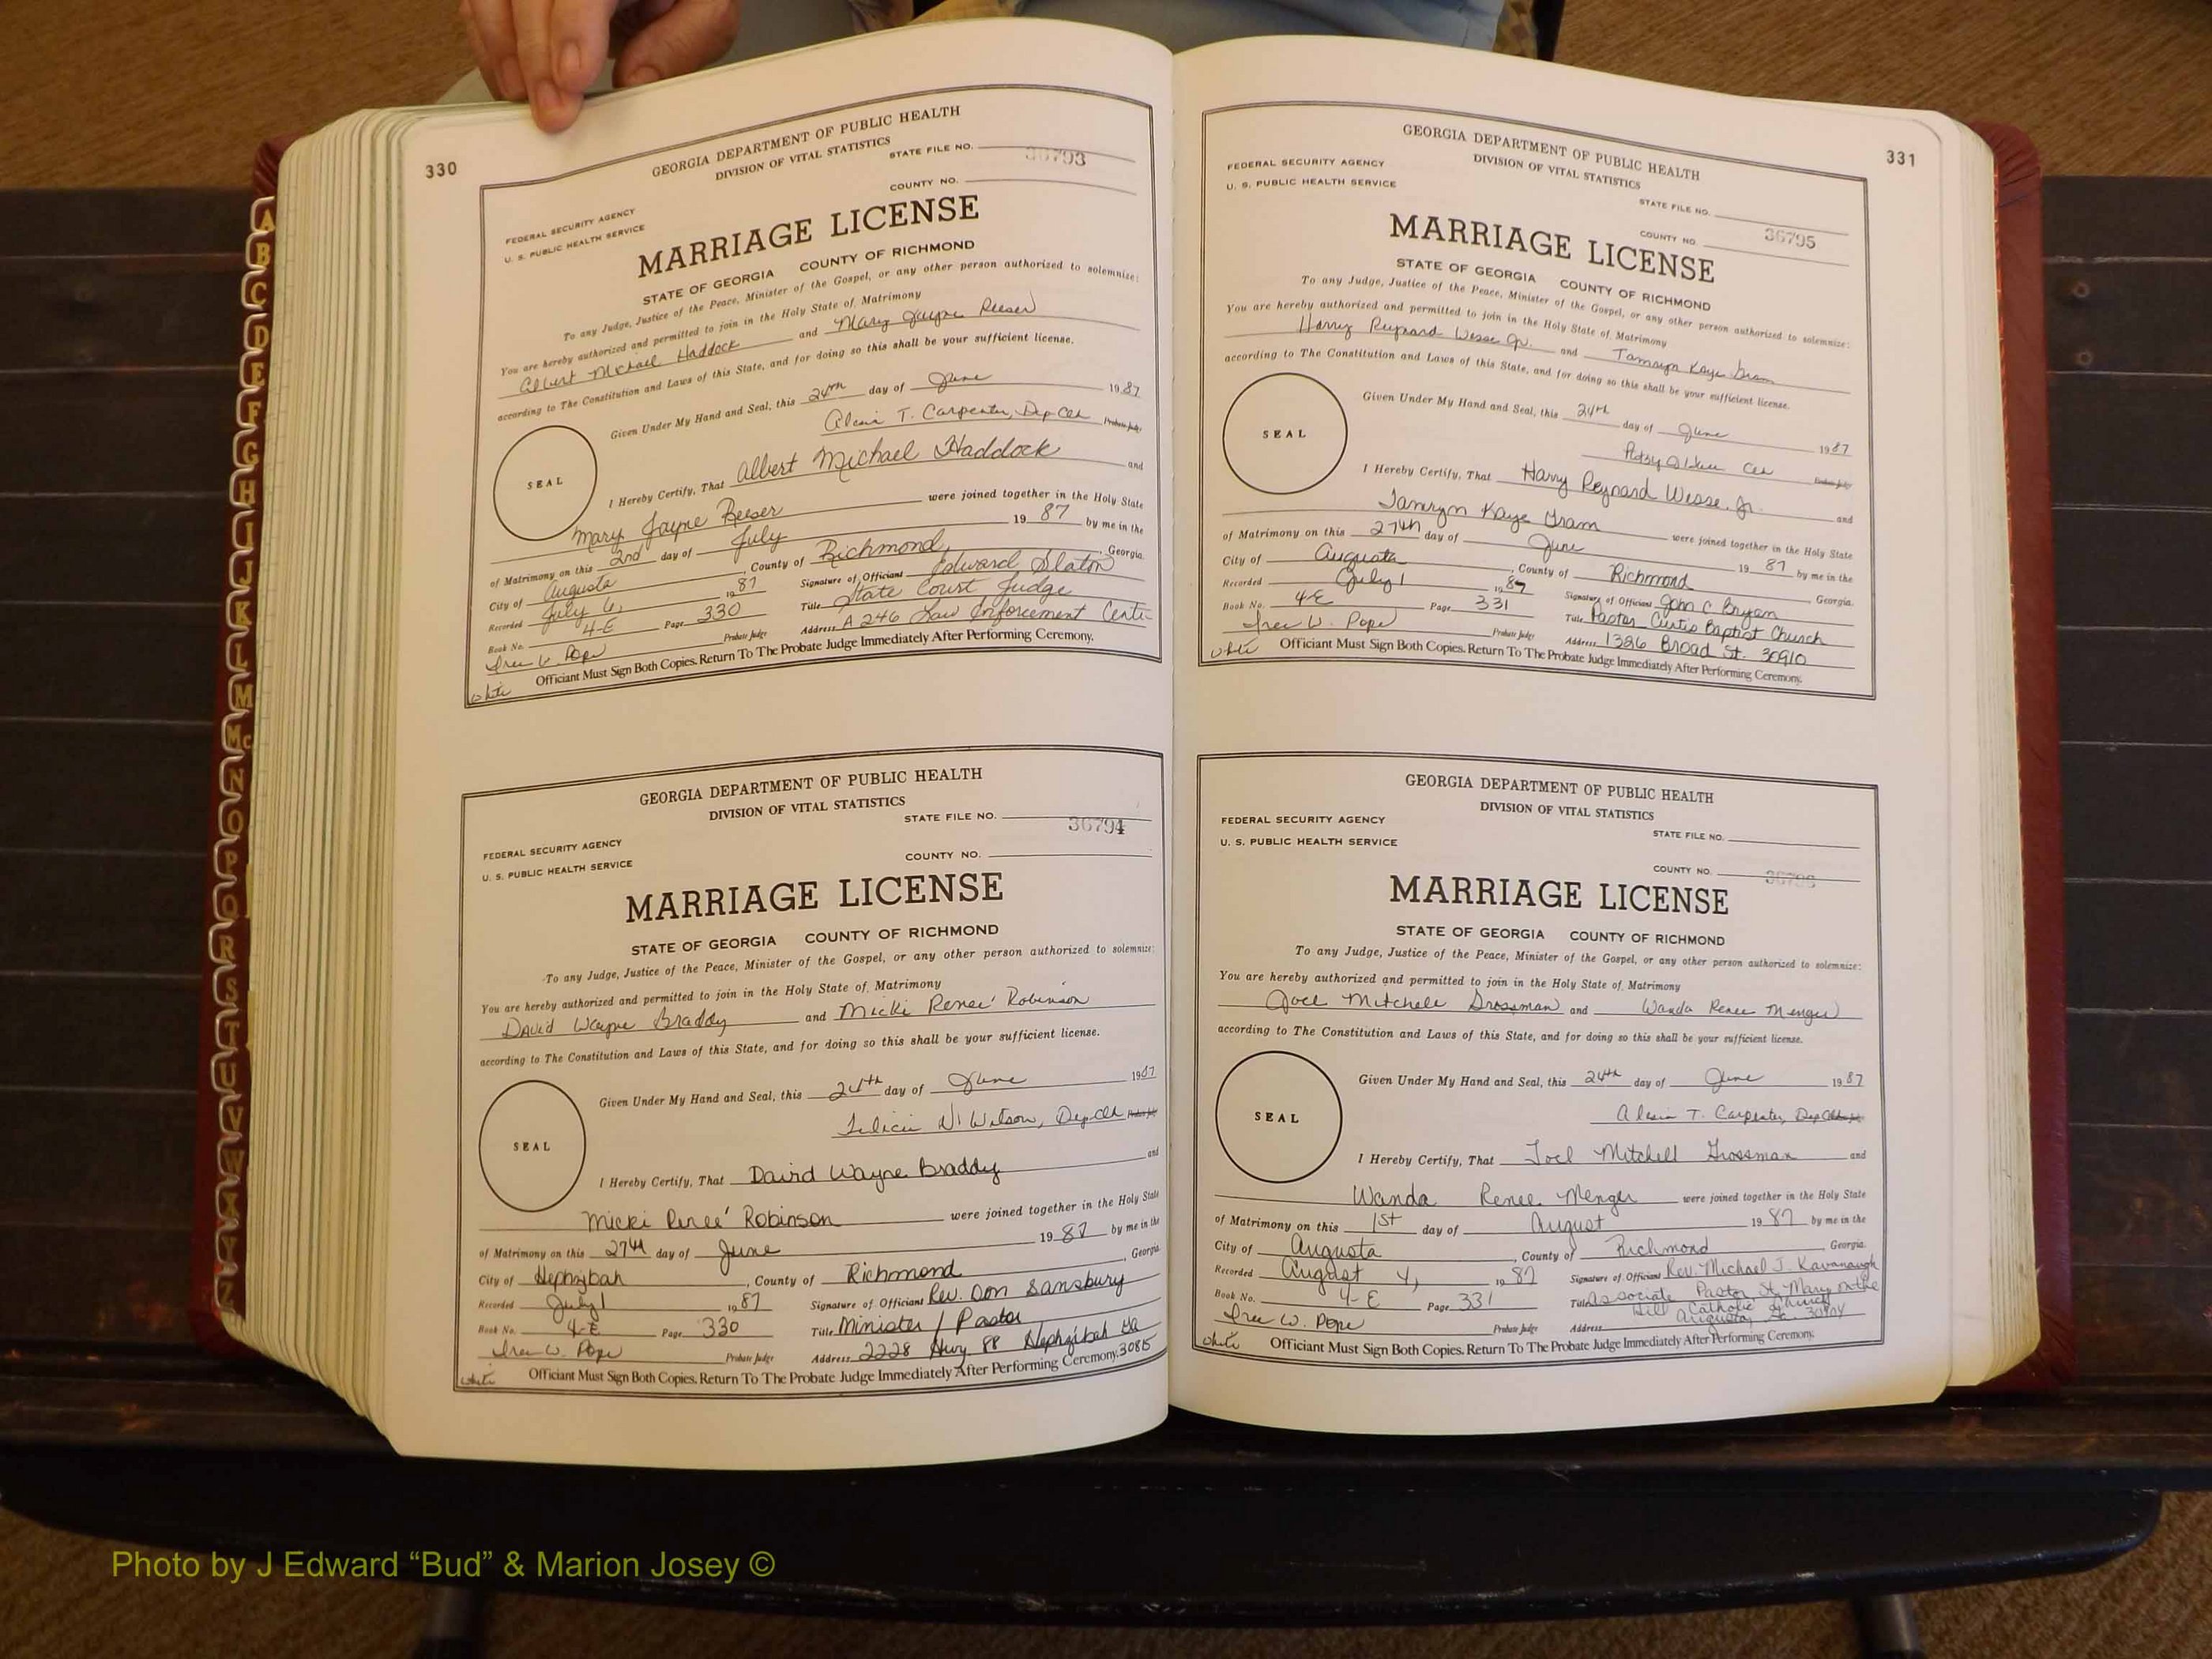 330
GEORGIA DEPARTMENT OF PUBLIC HEALTH
DIVISION OF VITAL STATISTICS
STATE FILE NO. 36793
COUNTY NO.
FEDERAL SECURITY AGENCY
U. S. PUBLIC HEALTH SERVICE
MARRIAGE LICENSE
STATE OF GEORGIA COUNTY OF RICHMOND
To any Judge, Justice of the Peace, Minister of the Gospel, or any other person authorized to solemnize:
You are hereby authorized and permitted to join in the Holy State of Matrimony
Albert Michael Haddock and Mary Jayne Reeser
according to The Constitution and Laws of this State, and for doing so this shall be your sufficient license.
Given Under My Hand and Seal, this 24th day of June 1987
T. Carpenter, Dep Clk Probate Judge
SEAL
I Hereby Certify, That Albert Michael Haddock and
Mary Jayne Reeser were joined together in the Holy State
of Matrimony on this 2nd day of July 1987 by me in the
City of Augusta, County of Richmond, Georgia.
Recorded July 6, 1987 Signature of Official Edward Slaton
Book No. 4-E Page 330 Title State Court Judge
W. Pope Probate Judge Address A 246 Law Enforcement Cente
white Officiant Must Sign Both Copies. Return To The Probate Judge Immediately After Performing Ceremony.
GEORGIA DEPARTMENT OF PUBLIC HEALTH
DIVISION OF VITAL STATISTICS
STATE FILE NO. 36794
COUNTY NO.
FEDERAL SECURITY AGENCY
U. S. PUBLIC HEALTH SERVICE
MARRIAGE LICENSE
STATE OF GEORGIA COUNTY OF RICHMOND
To any Judge, Justice of the Peace, Minister of the Gospel, or any other person authorized to solemnize:
You are hereby authorized and permitted to join in the Holy State of Matrimony
David Wayne Braddy and Micki Renee' Robinson
according to The Constitution and Laws of this State, and for doing so this shall be your sufficient license.
Given Under My Hand and Seal, this 24th day of June 1987
Wilson, Dep Clk Probate Judge
SEAL
I Hereby Certify, That David Wayne Braddy and
Micki Renee' Robinson were joined together in the Holy State
of Matrimony on this 27th day of June 1987 by me in the
City of Hephzibah, County of Richmond, Georgia.
Recorded July 1 1987 Signature of Official Rev. Don Sansbury
Book No. 4-E Page 330 Title Minister / Pastor
W. Pope Probate Judge Address 2228 Hwy 88 Hephzibah Ga 30815
white Officiant Must Sign Both Copies. Return To The Probate Judge Immediately After Performing Ceremony.
331
GEORGIA DEPARTMENT OF PUBLIC HEALTH
DIVISION OF VITAL STATISTICS
FEDERAL SECURITY AGENCY
U. S. PUBLIC HEALTH SERVICE
STATE FILE NO.
COUNTY NO. 36795
MARRIAGE LICENSE
STATE OF GEORGIA COUNTY OF RICHMOND
To any Judge, Justice of the Peace, Minister of the Gospel, or any other person authorized to solemnize:
You are hereby authorized and permitted to join in the Holy State of Matrimony
Harry Reynard Wesse Jr. and Tamryn Kaye Gram
according to The Constitution and Laws of this State, and for doing so this shall be your sufficient license.
Given Under My Hand and Seal, this 24th day of June 1987
Clk Probate Judge
SEAL
I Hereby Certify, That Harry Reynard Wesse, Jr. and
Tamryn Kaye Gram were joined together in the Holy State
of Matrimony on this 27th day of June 1987 by me in the
City of Augusta, County of Richmond Georgia.
Recorded July 1 1987 Signature of Official John C Bryan
Book No. 4-E Page 331 Title Pastor Curtis Baptist Church
W. Pope Probate Judge Address 1326 Broad St. 30910
white Officiant Must Sign Both Copies. Return To The Probate Judge Immediately After Performing Ceremony.
GEORGIA DEPARTMENT OF PUBLIC HEALTH
DIVISION OF VITAL STATISTICS
FEDERAL SECURITY AGENCY
U. S. PUBLIC HEALTH SERVICE
STATE FILE NO.
COUNTY NO. 36796
MARRIAGE LICENSE
STATE OF GEORGIA COUNTY OF RICHMOND
To any Judge, Justice of the Peace, Minister of the Gospel, or any other person authorized to solemnize:
You are hereby authorized and permitted to join in the Holy State of Matrimony
Joel Mitchell Grossman and Wanda Renee Menger
according to The Constitution and Laws of this State, and for doing so this shall be your sufficient license.
Given Under My Hand and Seal, this 24th day of June 1987
T. Carpenter, Dep Clk
SEAL
I Hereby Certify, That Joel Mitchell Grossman and
Wanda Renee Menger were joined together in the Holy State
of Matrimony on this 1st day of August 1987 by me in the
City of Augusta, County of Richmond Georgia.
Recorded August 4, 1987 Signature of Official Rev. Michael J. Kavanaugh
Book No. 4-E Page 331 Title Associate Pastor St. Mary on the
Hill Catholic Church
W. Pope Probate Judge Address Augusta, Ga. 30904
white Officiant Must Sign Both Copies. Return To The Probate Judge Immediately After Performing Ceremony.
A
B
C
D
E
F
G
H
I
J
K
L
M
Mc
N
O
P
Q
R
S
T
U
V
W
X
Y
Z
Photo by J Edward “Bud” & Marion Josey ©